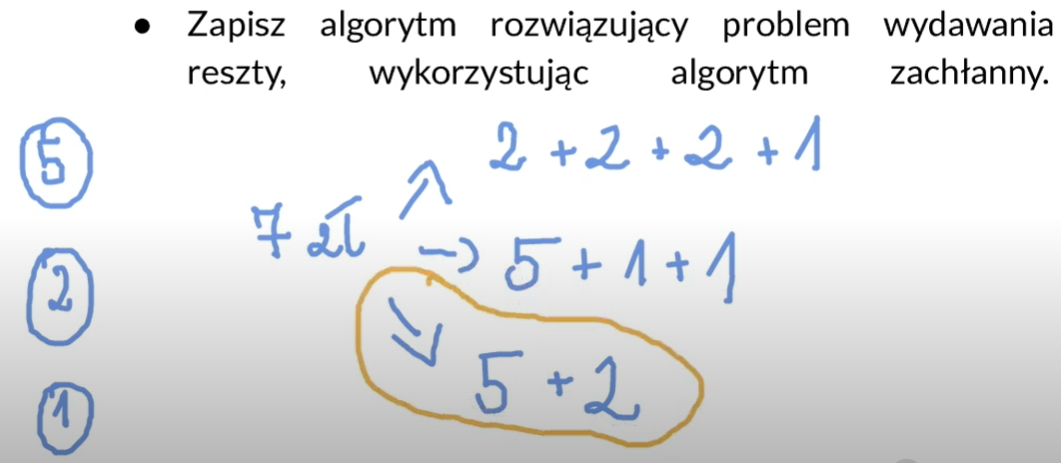 • Zapisz algorytm rozwiązujący problem wydawania
reszty, wykorzystując algorytm zachłanny.
5
2 + 2 + 2 + 1
7 zł
→ 5 + 1 + 1
2
5 + 2
1